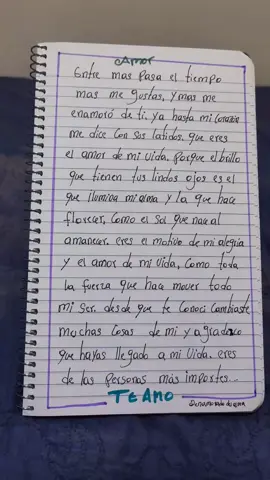 Amor
Entre mas Pasa el tiempo
mas me gustas, y mas me
enamoró de ti. ya hasta mi Corazón
me dice Con sus latidos. que eres
el amor de mi vida. Porque el brillo
que tienen tus lindos ojos es el
que ilumina mi alma y la que hace
florecer, Como el sol que nace al
amanecer. eres el motivo de mi alegria
y el amor de mi vida, Como toda
la fuerza que hace mover todo
mi ser. desde que te Conoci Cambiaste
muchas Cosas de mi y agradezco
que hayas llegado a mi vida. eres
de las Personas más importes...
TE AMO